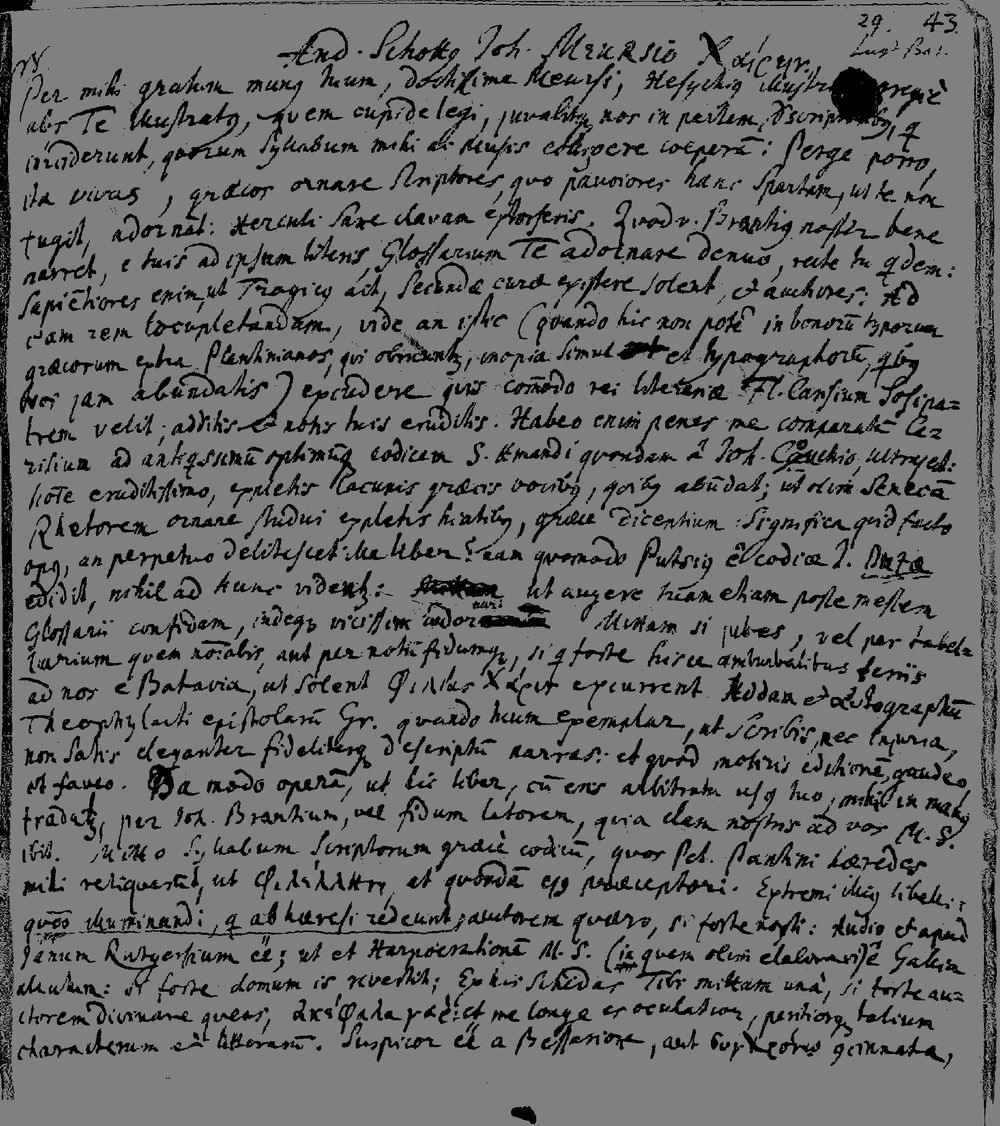 29. 43.
And. Schotto Joh. Meursio Χαίρειν.
Lugd. Bat.
Per mihi gratum munus tuum, doctissime Meursi, Hesychius illustris
abs Te illustratus, quem cupide legi, juvabitque nos in partem
inciderunt, quorum Syllabum mihi ab Musis coeperam: Perge porro,
ita vivas, græcos ornare Scriptores, quo pauciores hanc Spartam, ut te non
fugit, adornant: Herculi sane clavam extorseris. Quod v. Brantius noster bene
narret, e tuis ad ipsum literis Glossarium Te adornare denuo, recte tu qdem:
Sapientiores enim, ut Tragicus ait, Secundæ curæ existere solent, et auctiores. Ad
eam rem locupletandam, vide an istic (quando hic non potest in bonorū typorum
græcorum extra Plantinianos, qui obruuntur, inopia simul et typographorū, qibus
vos jam abundatis) excudere quis com̄odo rei literariæ Fl. Carisium Sosipa=
trem velit; additis et notis tuis eruditis. Habeo enim penes me comparatū Ca=
risium ad antiqissimū optimūq codicem S. Amandi quondam a Joh. Cauchio, Ultraject:
hoīe eruditissimo, expletis lacunis græcis vocibus, qibus abūdat; ut olim Senecā
Rhetorem ornare studui expletis hiatibus, græce dicentium: Significa quid facto
opus, an perpetuo delitescet ille liber? nam quomodo Putsius ē codice J. Duzæ
edidit, nihil ad hunc videntur: ut augere tuam etiam posse messem
Glossarii confidam, indeque vicissim Mittam si jubes, vel per tabel=
larium quem notabis, aut per notū fidumque, si q forte hisce ambarvalibus feriis
ad nos e Batavia, ut solent Φιλίας Χάριν excurrent. Addam et autographū
Theophylacti epistolarū Gr. quando tuum exemplar, ut scribis, nec injuria,
non satis eleganter fideliterque descriptū narras: et quod moliris editionē, gaudeo,
et faveo. Da modo operā, ut hic liber, cū eris arbitratu usus tuo, mihi in manus
tradatur, per Joh. Brantium, vel fidum latorem, quia clam nostris ad vos M. S.
ibit. Mitto Syllabum Scriptorum græcē codicū, quos Pet. Pantini hæredes
mihi reliquerūt, ut Φιλέλληνι, et quondā ejus præceptori. Extremi illius libelli:
quōo illuminandi, q ab hæresi redeunt, autorem quæro, si forte nosti: Audio et apud
Janum Rutgersium eē; ut et Harpocrationē M. S. (in quem olim elaboravi) ē Gallia
allatum: si forte domum is revertit; Ex his Schedas Tibi mittam una, si forte au=
ctorem divinare queas, ἀκέφαλα γάρ: et me longe es oculatior, peritiorque talium
characterum et litterarū. Suspicor eē a Bessarione, aut concinnata,